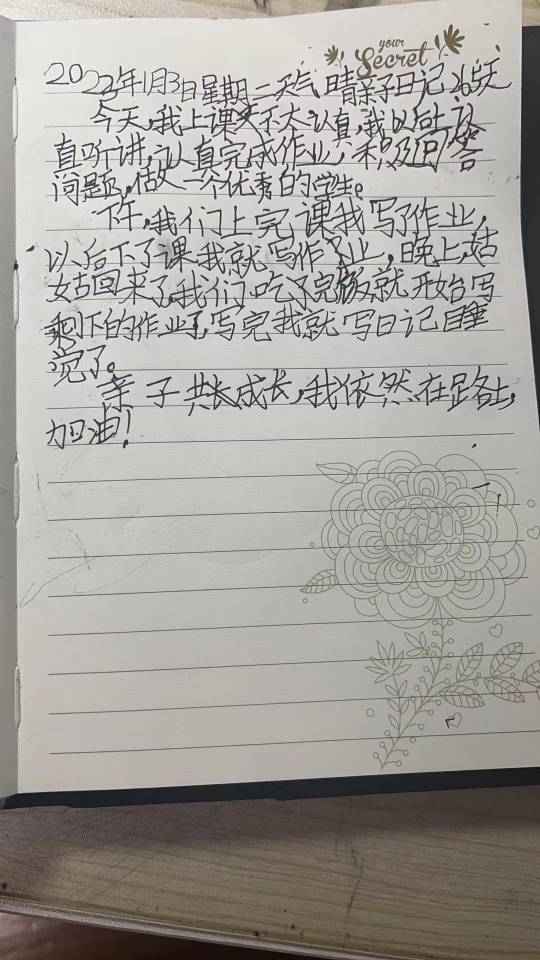 your
Secret
2023年1月3日星期二天气晴亲子日记265天
今天,我上课不太认真,我以后上认
真听讲,认真完成作业,积及回答
问题,做一个优秀的学生。
下午,我们上完课我写了作业,
以后下了课我就写作业,晚上,姑
姑回来了,我们吃了完饭,就开始写
剩下的作业了,写完我就写日记睡
觉了。
亲子共长成长,我依然在路上,
加油!